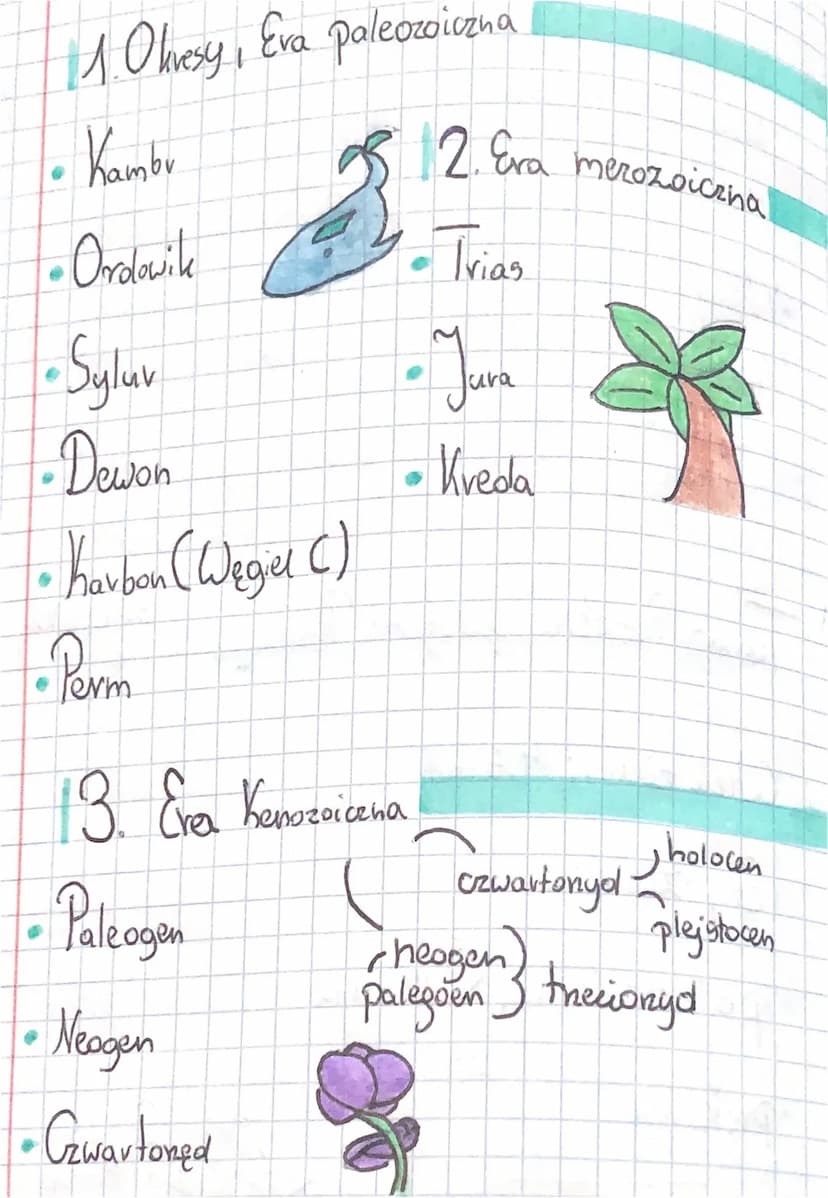 1. Okresy, Era paleozoiczna
• Kambr
• Ordowik
• Sylur
• Dewon
• Karbon (Węgiel C)
• Perm
2. Era mezozoiczna
• Trias
• Jura
• Kreda
3. Era Kenozoiczna
• Paleogen
• Neogen
• Czwartorzęd
czwartorzyd
holocen
plejstocen
neogen
palegoen
trzeciorzyd